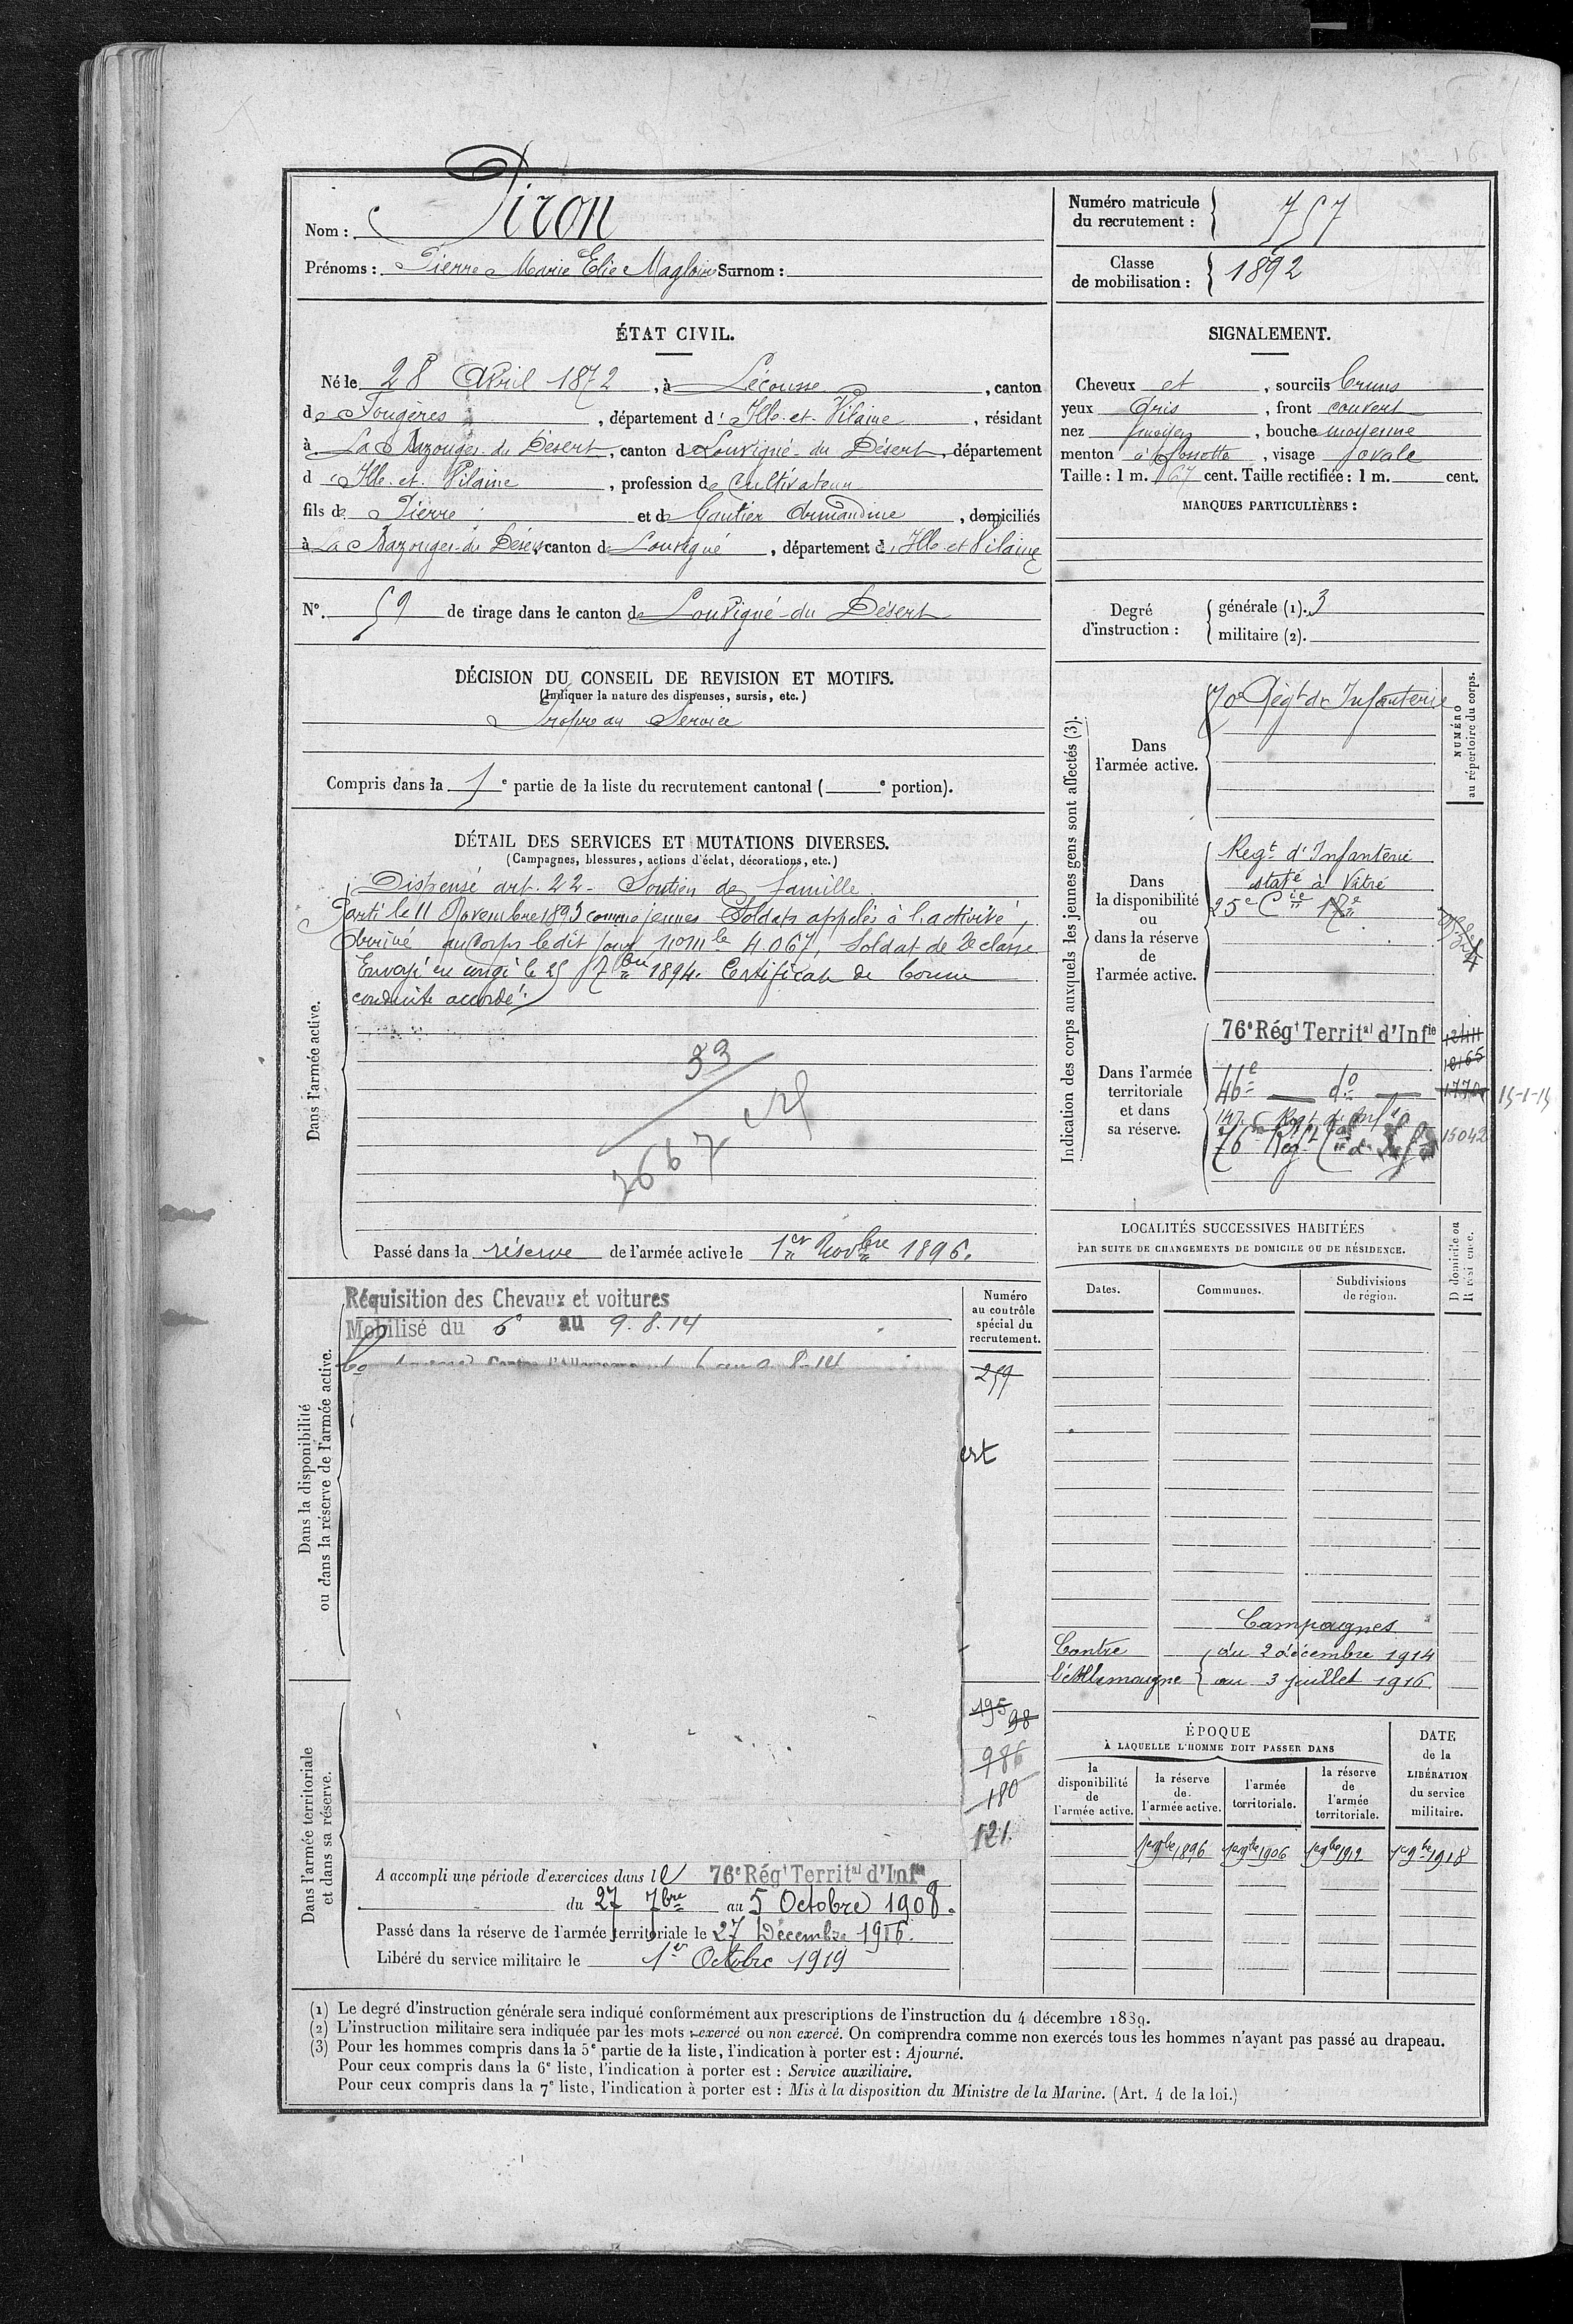 Nom : Piron
Prénoms : Pierre Marie Elie Magloire Surnom :
Numéro matricule du recrutement : 757
Classe de mobilisation : 1892
ÉTAT CIVIL.
Né le 28 Avril 1872, à Lécousse, canton
de Fougères, département d'Ille-et-Vilaine, résidant
à La Bazouges du Désert, canton de Louvigné-du Désert, département
d'Ille-et-Vilaine, profession de Cultivateur
fils de Pierre et de Gautier Armandine, domiciliés
à La Bazouges-du Désert, canton de Louvigné, département d'Ille et Vilaine
N° 59 de tirage dans le canton de Louvigné-du Désert
SIGNALEMENT.
Cheveux et, sourcils bruns
yeux gris, front couvert
nez moyen, bouche moyenne
menton à fossette, visage ovale
Taille : 1 m. 67 cent. Taille rectifiée : 1 m. cent.
MARQUES PARTICULIÈRES :
Degré d'instruction : générale (1). 3
militaire (2).
DÉCISION DU CONSEIL DE REVISION ET MOTIFS.
(Indiquer la nature des dispenses, sursis, etc.)
Propre au Service
Compris dans la 1e partie de la liste du recrutement cantonal ( e portion).
DÉTAIL DES SERVICES ET MUTATIONS DIVERSES.
(Campagnes, blessures, actions d'éclat, décorations, etc.)
Dans l'armée active.
Dispensé art. 22 - Soutien de famille.
Parti le 11 Novembre 1893 comme jeunes Soldats appelés à l'activité,
Arrivé au Corps le dit jour, no mle 4067, Soldat de 2e classe
Envoyé en congé le 25 7bre 1894. Certificat de bonne
conduite accordé.
33
2667
Passé dans la réserve de l'armée active le 1er Novbre 1896.
Indication des corps auxquels les jeunes gens sont affectés (3).
NUMÉRO au répertoire du corps.
Dans l'armée active.
70e Régt de Infanterie
Dans la disponibilité ou dans la réserve de l'armée active.
Regt d'Infanterie
staté à Vitré
25e Cie
Dans l'armée territoriale et dans sa réserve.
76e Régt Territal d'Infie
46e do
147e Regt de Infie
76e Regt Tal d'Infie
15042
LOCALITÉS SUCCESSIVES HABITÉES
PAR SUITE DE CHANGEMENTS DE DOMICILE OU DE RÉSIDENCE.
Dates. Communes. Subdivisions de région. D domicile ou R résidence.
Campagnes
Contre du 2 décembre 1914
l'Allemagne au 3 juillet 1916
Dans la disponibilité ou dans la réserve de l'armée active.
Réquisition des Chevaux et voitures
Mobilisé du 6 au 9.8.14
Numéro au contrôle spécial du recrutement.
259
195
98
986
180
121.
Dans l'armée territoriale et dans sa réserve.
A accompli une période d'exercices dans le 76e Régt Territal d'Infie
du 27 7bre au 5 Octobre 1908.
Passé dans la réserve de l'armée territoriale le 27 Décembre 1916.
Libéré du service militaire le 1er Octobre 1919
ÉPOQUE
À LAQUELLE L'HOMME DOIT PASSER DANS
la disponibilité de l'armée active.
la réserve de l'armée active.
l'armée territoriale.
la réserve de l'armée territoriale.
DATE de la LIBÉRATION du service militaire.
1er 9bre 1896 1er 9bre 1906 1er 9bre 1912 1er 9bre 1918
(1) Le degré d'instruction générale sera indiqué conformément aux prescriptions de l'instruction du 4 décembre 1889.
(2) L'instruction militaire sera indiquée par les mots exercé ou non exercé. On comprendra comme non exercés tous les hommes n'ayant pas passé au drapeau.
(3) Pour les hommes compris dans la 5e partie de la liste, l'indication à porter est : Ajourné.
Pour ceux compris dans la 6e liste, l'indication à porter est : Service auxiliaire.
Pour ceux compris dans la 7e liste, l'indication à porter est : Mis à la disposition du Ministre de la Marine. (Art. 4 de la loi.)